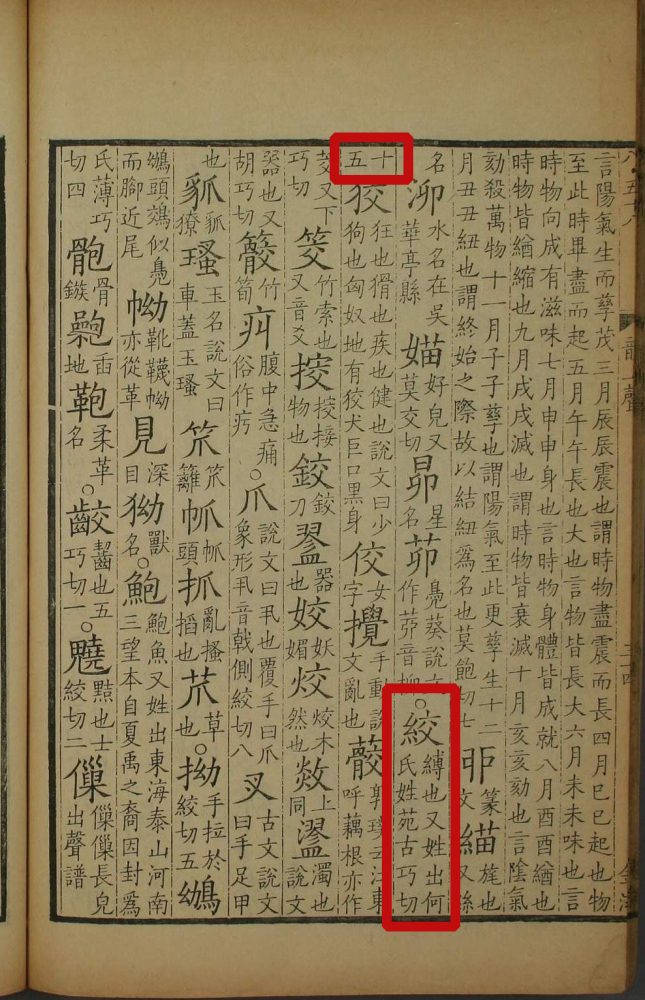 言陽氣生而孳茂三月辰辰震也謂時物盡震而長四月巳巳起也物
至此時畢盡而起五月午午長也大也言物皆長大六月未未味也言
時物向成有滋味七月申申身也言時物身體皆成就八月酉酉緧也
時物皆緧縮也九月戌戌滅也謂時物皆衰滅十月亥亥劾也言陰氣
劾殺萬物十一月子子孳也謂陽氣至此更孳生十二月丑丑紐也謂終始之際故以結紐爲名也莫飽切七戼篆文緢旄也又絲
名泖水名在吳華亭縣媌好皃又莫交切昴星名茆鳧葵說文作音柳○絞縛也又姓出何氏姓苑古巧切
十五狡狂也猾也疾也健也說文曰少狗也匈奴地有狡犬巨口黑身佼女字攪手動說文亂也郭璞云江東呼藕根亦作
茭又下巧切筊竹索也又音爻挍挍接物也鉸鉸刀器也姣妖媚烄烄木然也上同濁也說文
器也又胡巧切竹筍㽱腹中急痛俗作○爪說文曰丮也覆手曰爪象形丮音戟側絞切八叉古文說文曰手足甲
也獠瑵玉名說文曰車蓋玉瑵笊笊籬頭抓亂搔搯也草也○拗手拉於絞切五鴢
鴢頭鵁似鳧而腳近尾靴韈亦從革深目㺒獸名○鮑鮑魚又姓出東海泰山河南三望本自夏禹之裔因封爲
氏薄巧切四骲骨鏃地鞄柔革名○齩齧也五巧切一○也士絞切二長皃出聲譜